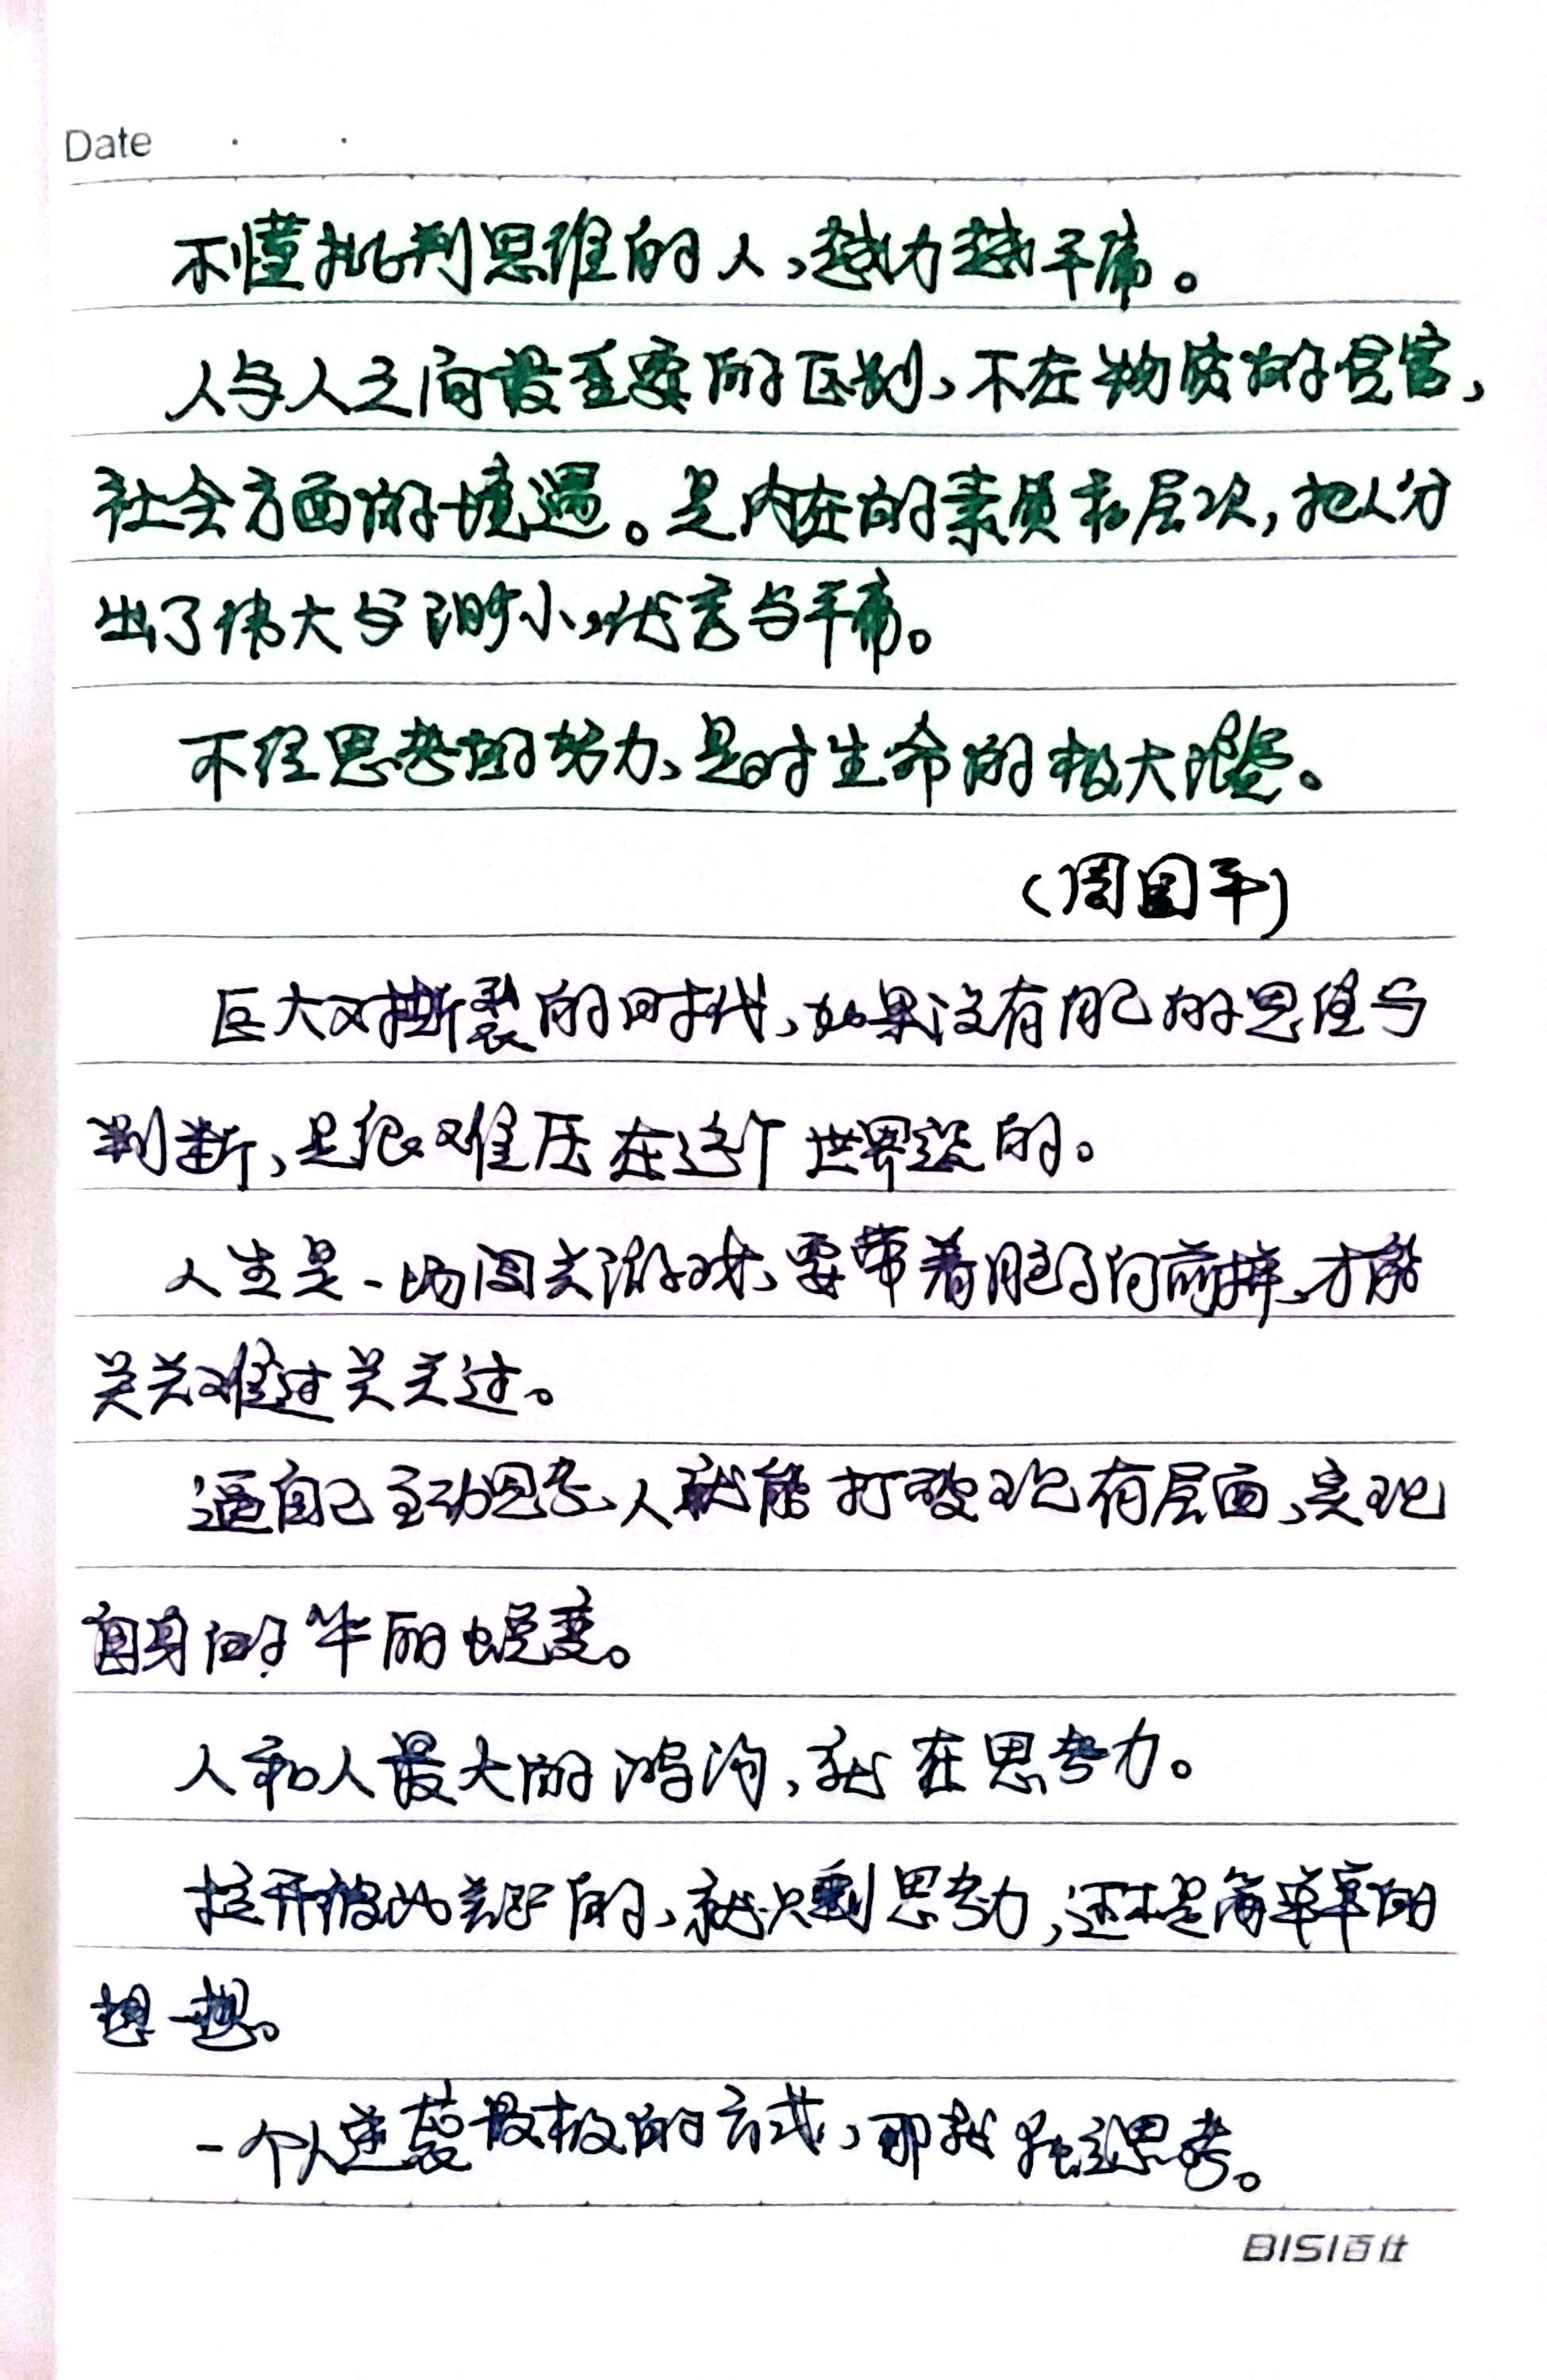 Date
不懂批判思维的人,越力越平庸。
人与人之间最重要的区别,不在物质的贫富,
社会方面的境遇。是内在的素质和层次,把人分
出了伟大与渺小,优秀与平庸。
不经思考的努力,是对生命的极大浪费。
(周国平)
巨大又撕裂的时代,如果没有自己的思维与
判断,是很难压在这个世界的。
人生是一场闯关游戏,要带着脑子向前拼,才能
关关难过关关过。
逼自己主动思考,人就能打破现有层面,实现
自身的华丽蜕变。
人和人最大的鸿沟,就在思考力。
拉开彼此差距的,就只剩思考力,还不是简单单的
想一想。
一个人逆袭最极的方式,那就独立思考。
BISI百仕